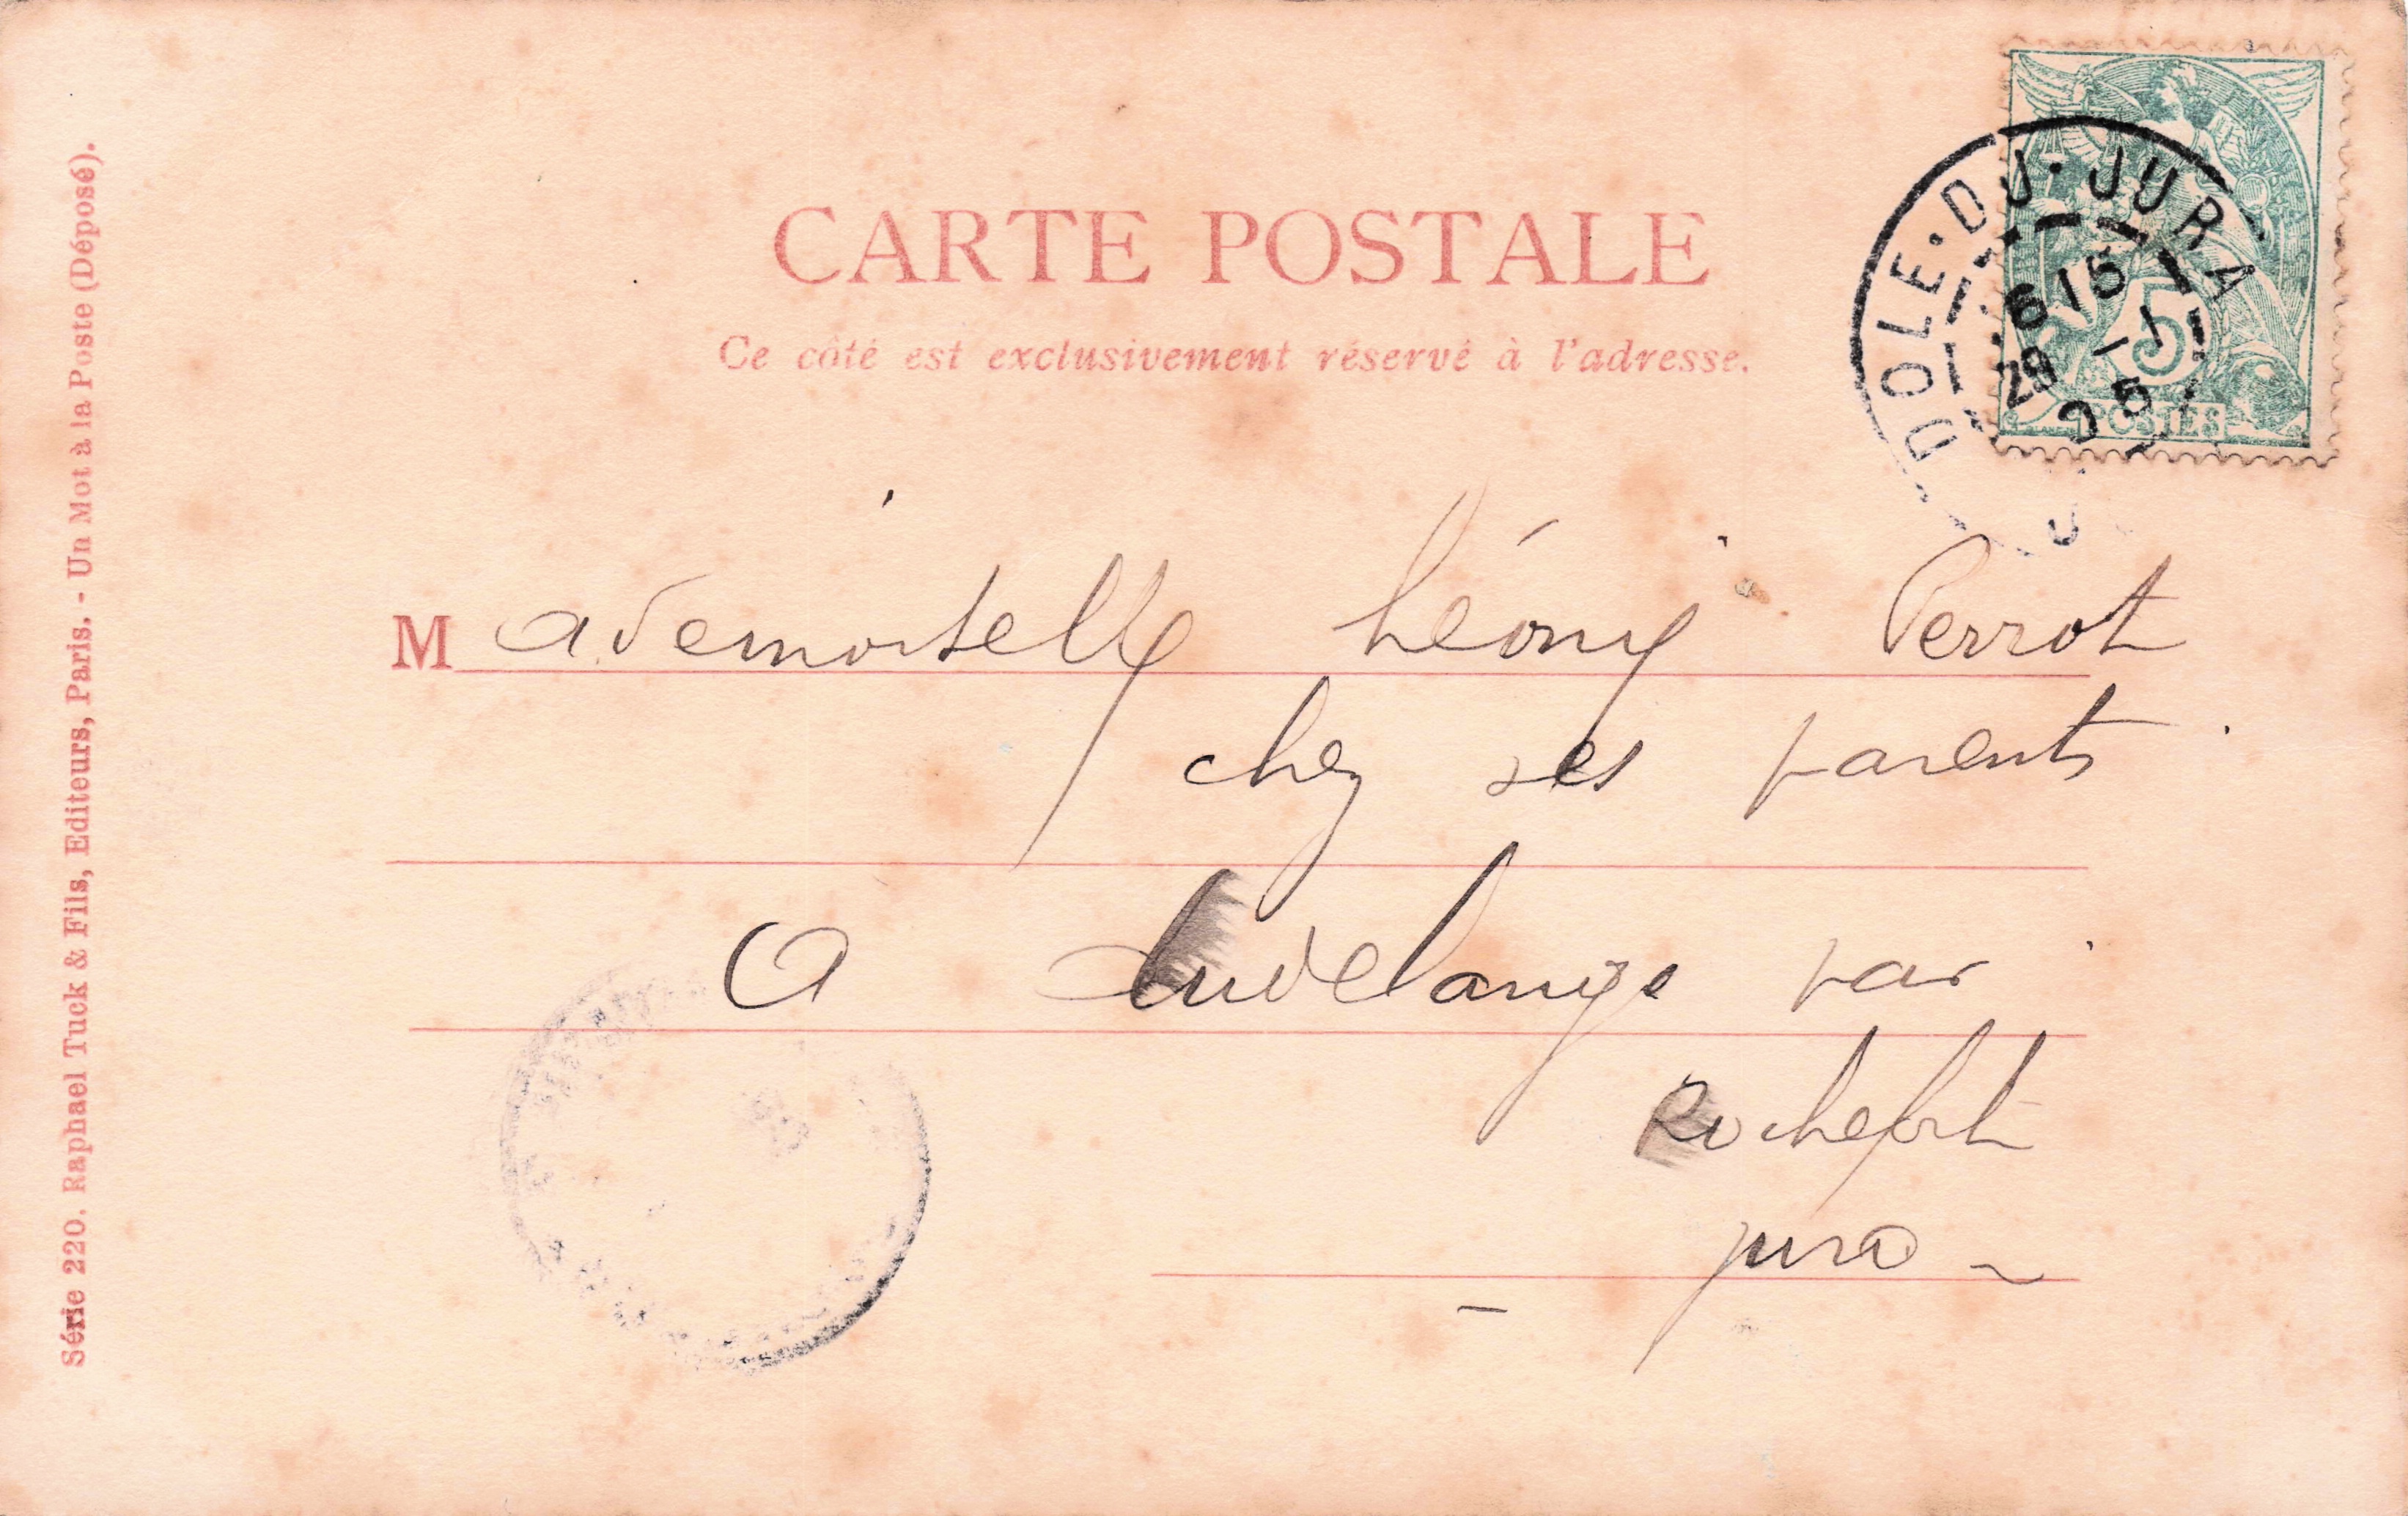 CARTE POSTALE
Ce côté est exclusivement réservé à l'adresse.
DOLE·DU·JURA
6 15
29 1
05
5
POSTES
Mademoiselle Léonie Perrot
chez ses parents
à Audelange par
Rochefort
Jura
Série 220. Raphael Tuck & Fils, Editeurs, Paris. - Un Mot à la Poste (Déposé).